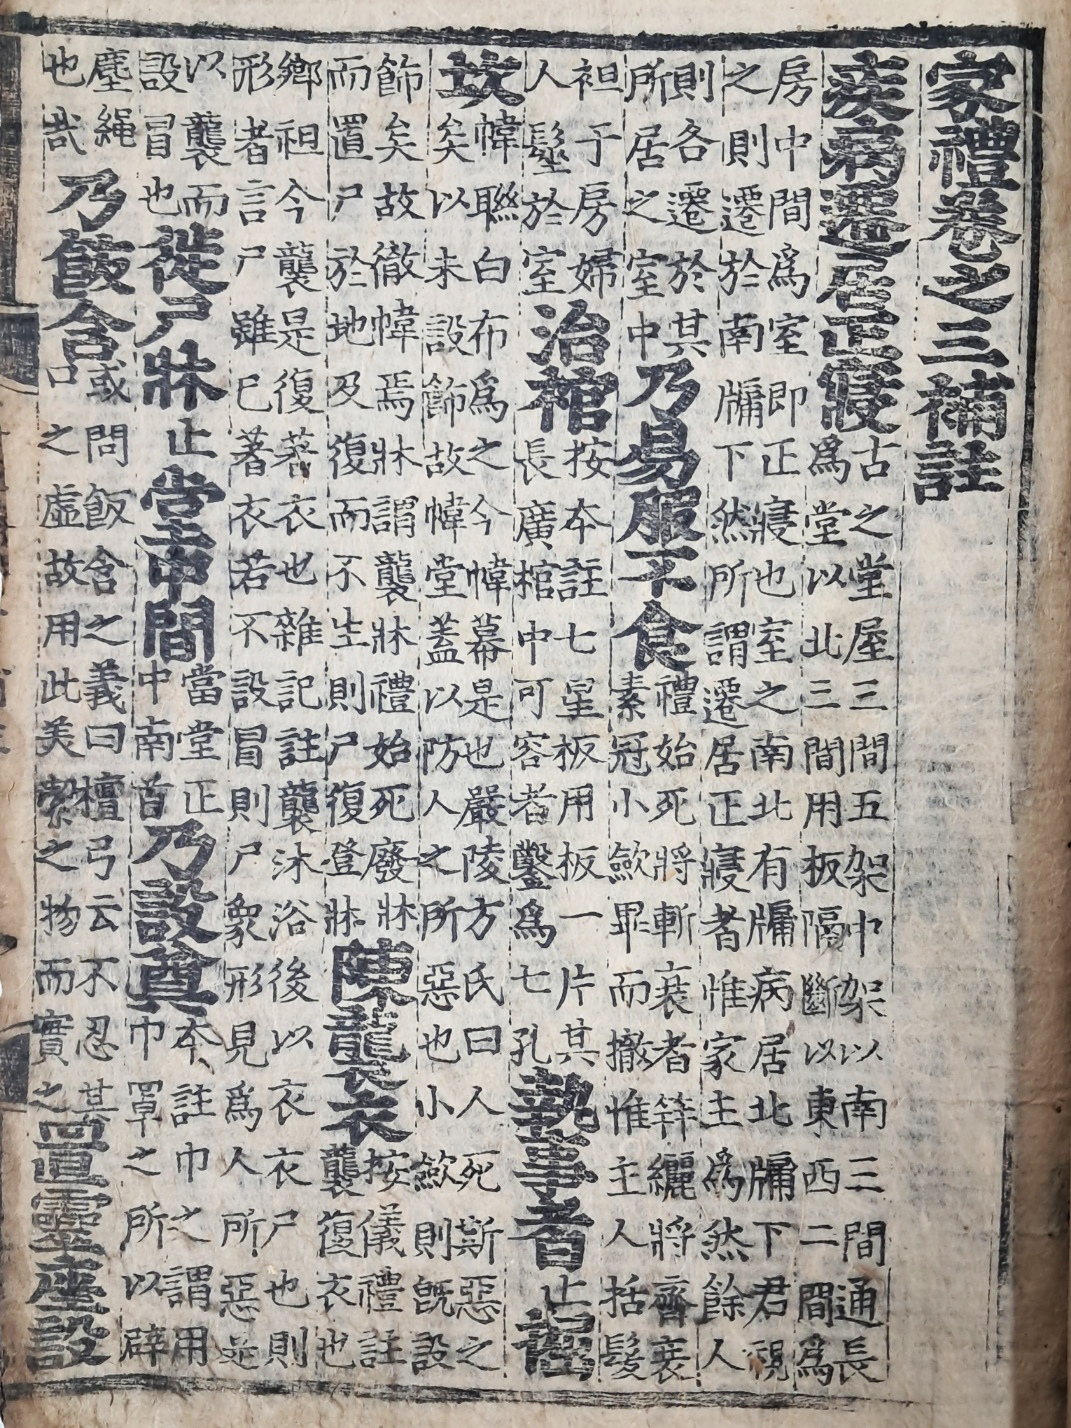 家禮卷之三補註
疾病遷居正寢
古之堂屋三間五架中架以南三間通長
爲堂以北三間用板隔斷以東西二間爲
房中間爲室即正寢也室之南北有牖病居北牖下君視
之則遷於南牖下然所謂遷居正寢者惟家主爲然餘人
則各遷於其
所居之室中
乃易服不食
禮始死將斬衰者笄纚將齊衰
素冠小斂畢而撤惟主人括髮
袒于房婦
人髽於室
治棺
按本註七星板用板一片其
長廣棺中可容者鑿爲七孔
執事者止掘
坎
幃聯白布爲之今幃幕是也嚴陵方氏曰人死斯惡之
矣以未設飾故幃堂蓋以防人之所惡也小斂則既設
飾矣故徹幃焉牀謂襲牀禮始死廢牀
而置尸於地及復而不生則尸復登牀
陳襲衣
按儀禮註
襲復衣也
鄉袒今襲是復著衣也雜記註襲沐浴後以衣衣尸也則
形者言尸雖已著衣若不設冒則尸象形見爲人所惡是
以襲而
設冒也
徙尸牀止堂中間
當堂正
中南首
乃設奠
本註巾之謂用
巾罩之所以辟
塵繩
也哉
乃飯含
或問飯含之義曰檀弓云不忍其
口之虛故用此美潔之物而實之
置靈座設